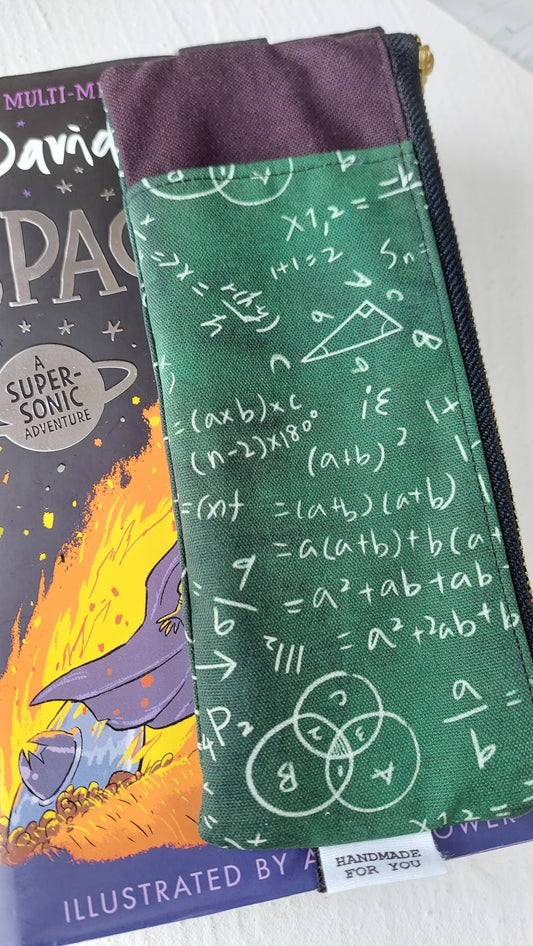 MULTI-MI
David
SPAC
A
SUPER-
SONIC
ADVENTURE
ILLUSTRATED BY A
OWER
B
x1,2 =
1+1=2
Sn=
A
c
a
B
n
=(axb)xc
iε
1+
(n-2)x180°
(a+b)²
=(x+
=(a+b)(a+b)
=a(a+b)+b(a+
b
=a²+ab+ab
=a²+2ab+b
P2
C
2
3
B
1
A
a
=
x1,2=
HANDMADE
FOR YOU